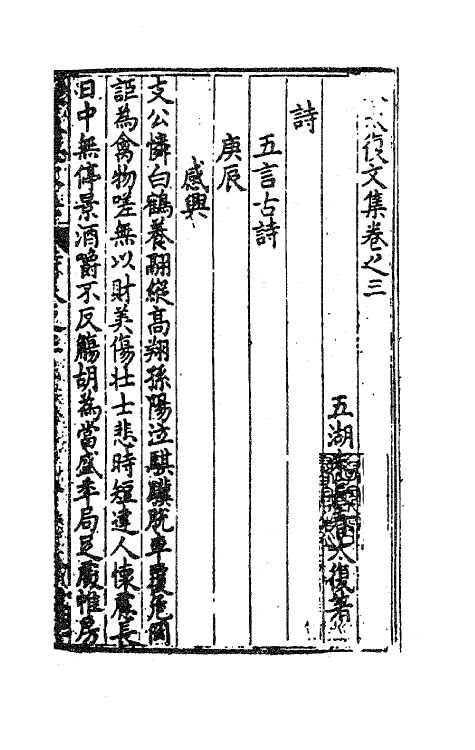 復文集卷之三
五湖 大復著
詩
五言古詩
庚辰
感興
支公憐白鶴養翮縱高翔孫陽泣騏驥脫車覆危岡
詎為禽物嗟無以財美傷壯士悲時短達人懷慮長
日中無停景酒爵不反觴胡為當盛年局足嚴帷房